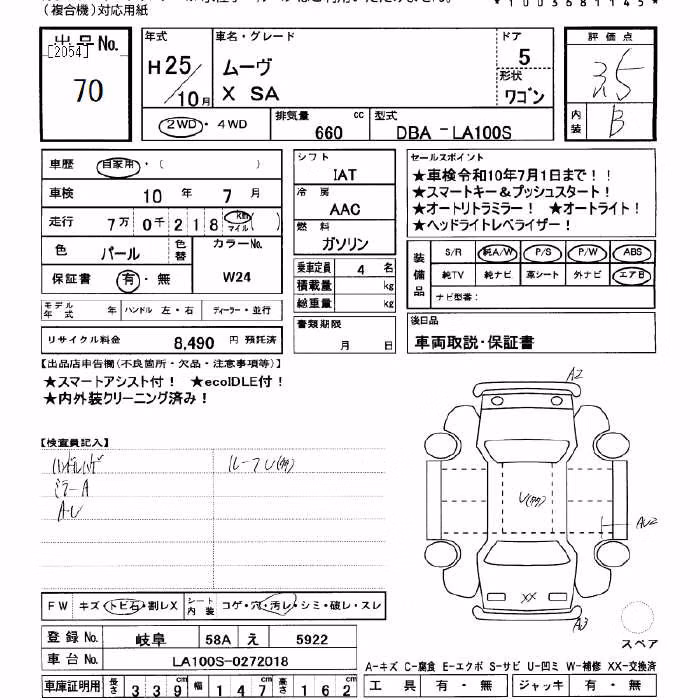 （複合機）対応用紙
*1003681145*
出品No.
[2054]
70
年式
H25/10月
車名・グレード
ムーヴ
X SA
ドア
5
形状
ワゴン
評価点
3.5
内装
B
2WD・4WD
排気量 cc
660
型式
DBA-LA100S
車歴 自家用・( )
車検 10年 7月
走行 7万0千218 km マイル ( )
色 パール
色替
カラーNo.
W24
保証書 有・無
モデル年式 年
ハンドル 左・右
ディーラー・並行
リサイクル料金 8,490 円 預託済
シフト
IAT
冷房
AAC
燃料
ガソリン
乗車定員 4 名
積載量 kg
総重量 kg
書類期限
月 日
セールスポイント
★車検令和10年7月1日まで！！
★スマートキー＆プッシュスタート！
★オートリトラミラー！ ★オートライト！
★ヘッドライトレベライザー！
装備品
S/R 純A/W P/S P/W ABS
純TV 純ナビ 革シート 外ナビ エアB
ナビ型番：
後日品
車両取説・保証書
【出品店申告欄(不良箇所・欠品・注意事項等)】
★スマートアシスト付！ ★ecoIDLE付！
★内外装クリーニング済み！
【検査員記入】
ルーフU(内)
ミラーA
A・U
A2
U(内)
AU2
XX
A3
スペア
FW キズ・トビ石・割レX
シート内装 コゲ・穴・汚レ・シミ・破レ・スレ
登録No. 岐阜 58A え 5922
車台No. LA100S-0272018
車庫証明用 長さ 339 幅 147 高さ 162
A-キズ C-腐食 E-エクボ S-サビ U-凹ミ W-補修 XX-交換済
工具 有・無 ジャッキ 有・無